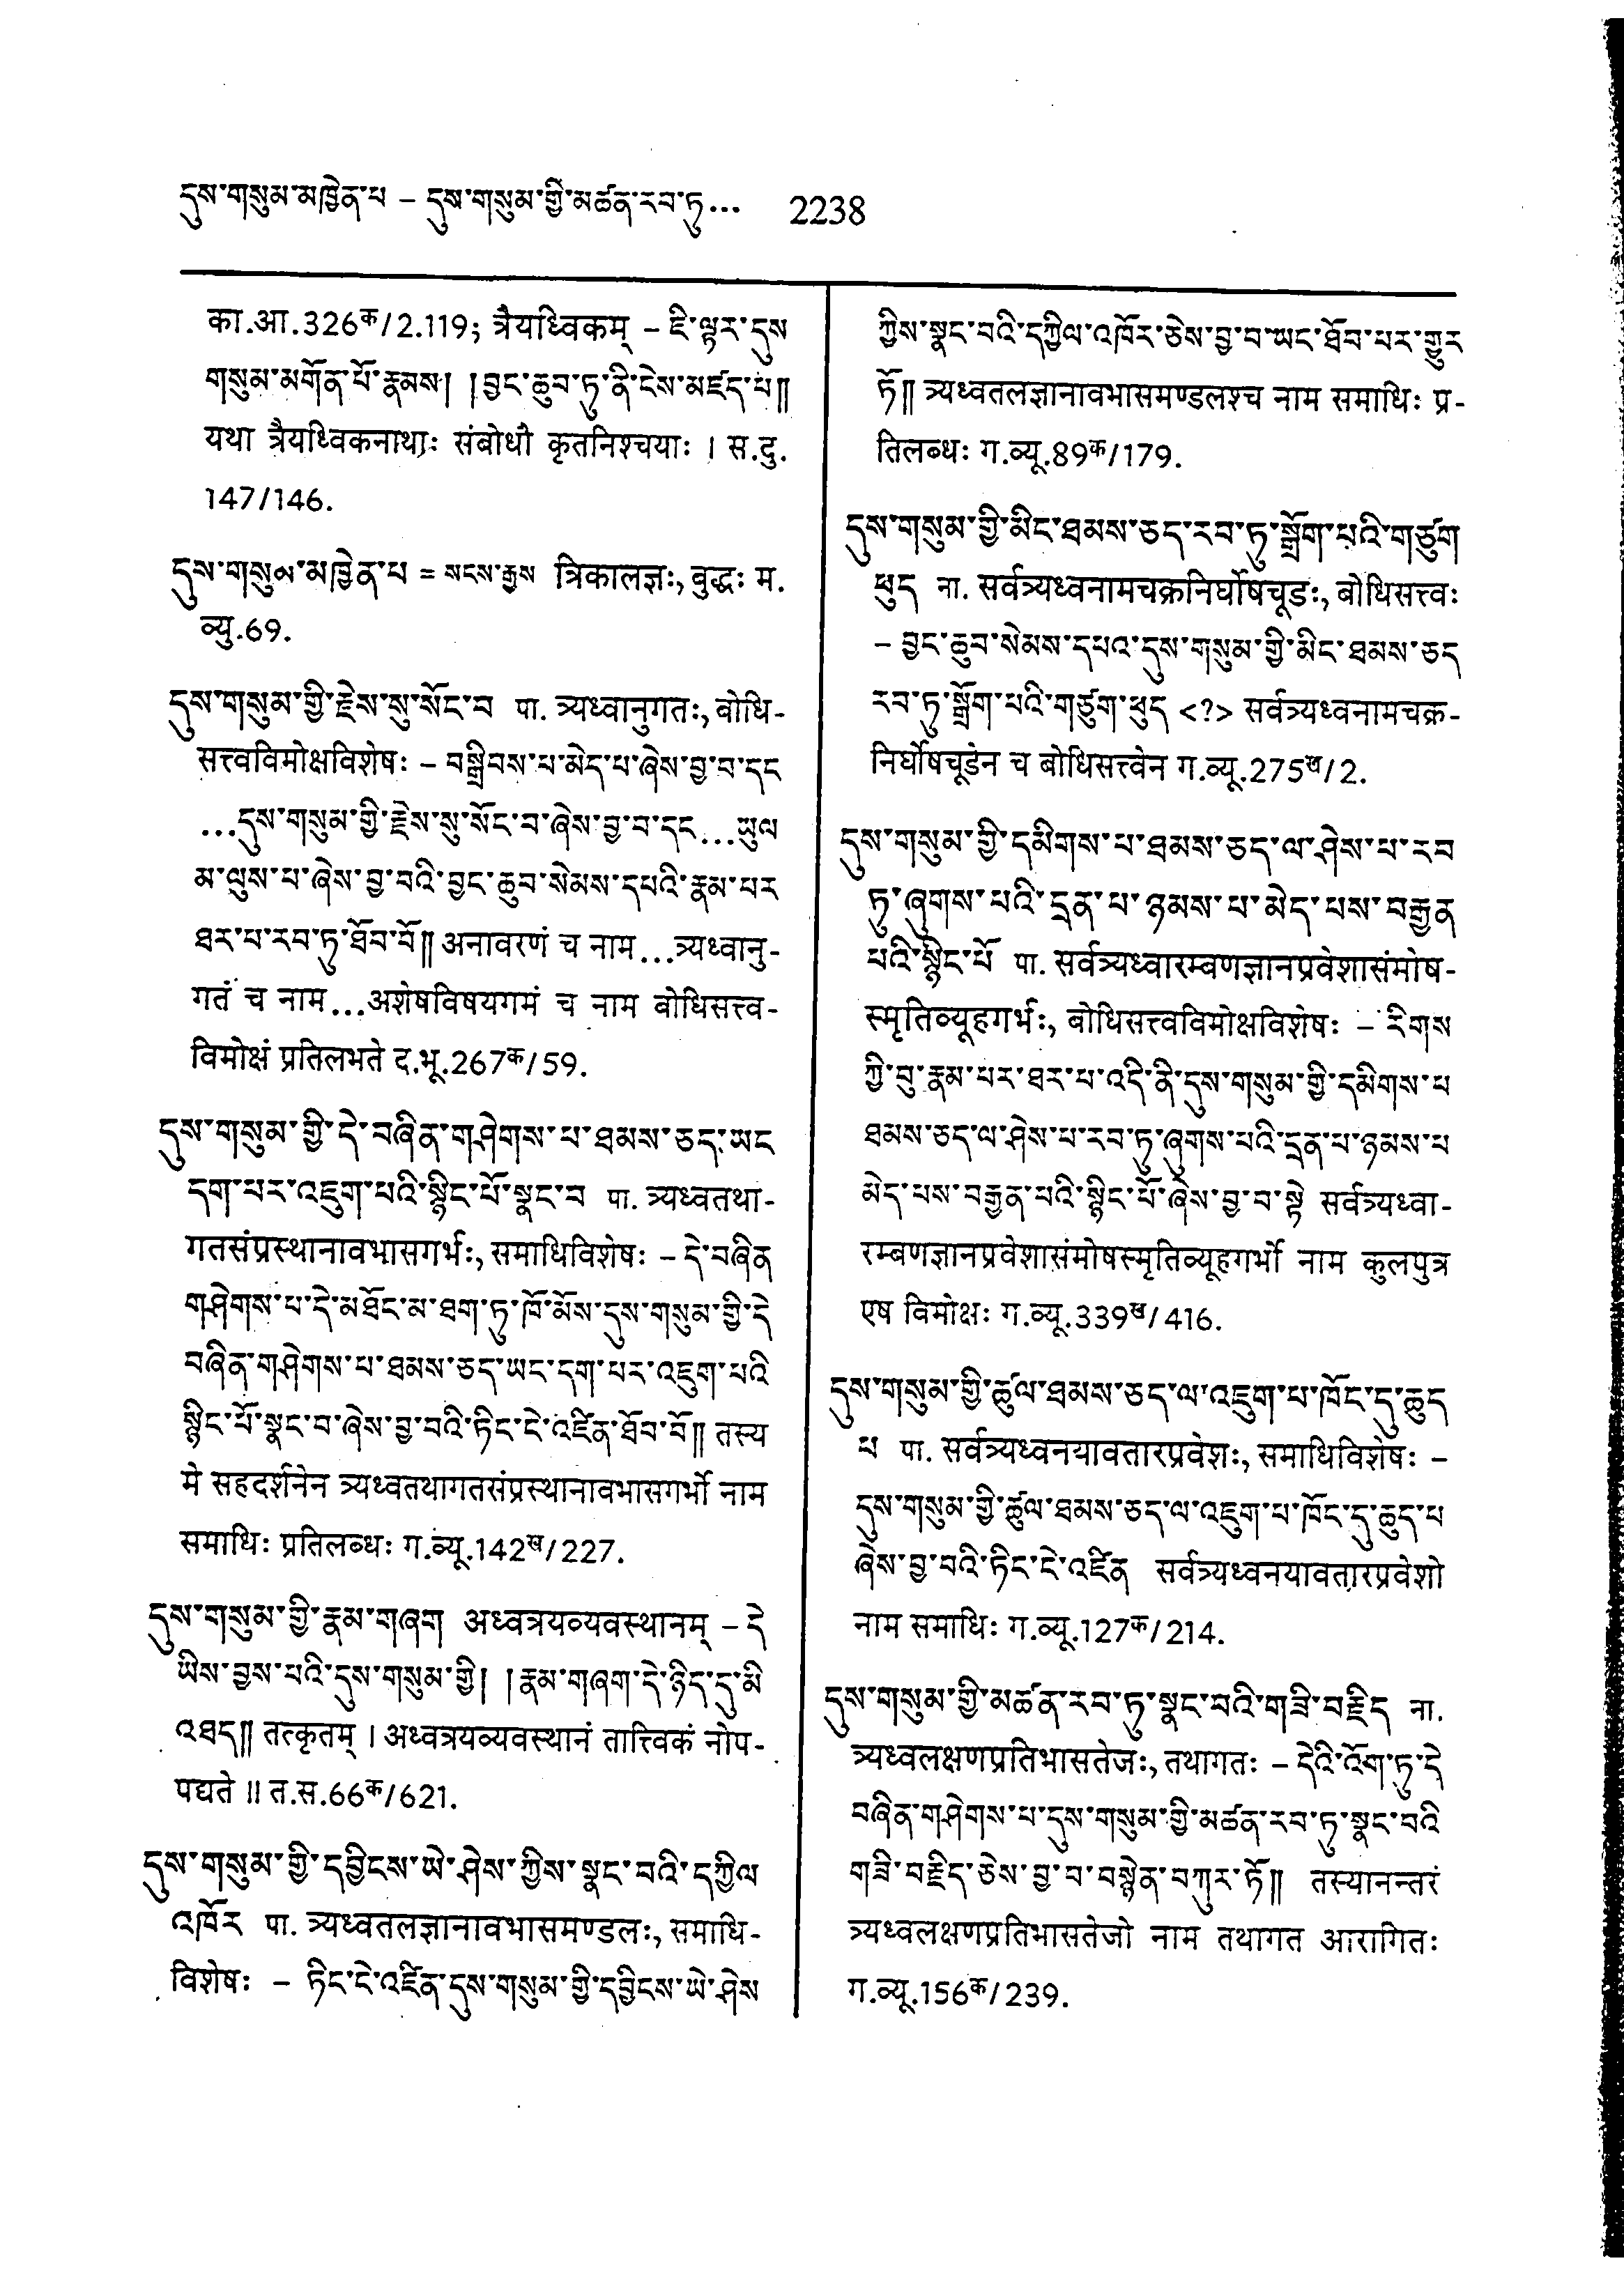 དུས་གསུམ་མཁྱེན་པ – དུས་གསུམ་གྱི་མཚན་རབ་ཏུ... 2238
का.आ.326क/2.119; त्रैयध्विकम् – ཇི་ལྟར་དུས
གསུམ་མགོན་པོ་རྣམས། །བྱང་ཆུབ་ཏུ་ནི་ངེས་མཛད་པ༎
यथा त्रैयध्विकनाथाः संबोधौ कृतनिश्चयाः । स.दु.
147/146.
དུས་གསུམ་མཁྱེན་པ = སངས་རྒྱས त्रिकालज्ञः, बुद्धः म.
व्यु.69.
དུས་གསུམ་གྱི་རྗེས་སུ་སོང་བ पा. त्र्यध्वानुगतः, बोधि-
सत्त्वविमोक्षविशेषः – བསྒྲིབས་པ་མེད་པ་ཞེས་བྱ་བ་དང
...དུས་གསུམ་གྱི་རྗེས་སུ་སོང་བ་ཞེས་བྱ་བ་དང...ཡུལ
མ་ལུས་པ་ཞེས་བྱ་བའི་བྱང་ཆུབ་སེམས་དཔའི་རྣམ་པར
ཐར་པ་རབ་ཏུ་ཐོབ་བོ༎ अनावरणं च नाम...त्र्यध्वानु-
गतं च नाम...अशेषविषयगमं च नाम बोधिसत्त्व-
विमोक्षं प्रतिलभते द.भू.267क/59.
དུས་གསུམ་གྱི་དེ་བཞིན་གཤེགས་པ་ཐམས་ཅད་ཡང
དག་པར་འཇུག་པའི་སྙིང་པོ་སྣང་བ पा. त्र्यध्वतथा-
गतसंप्रस्थानावभासगर्भः, समाधिविशेषः – དེ་བཞིན
གཤེགས་པ་དེ་མཐོང་མ་ཐག་ཏུ་ཁོ་མོས་དུས་གསུམ་གྱི་དེ
བཞིན་གཤེགས་པ་ཐམས་ཅད་ཡང་དག་པར་འཇུག་པའི
སྙིང་པོ་སྣང་བ་ཞེས་བྱ་བའི་ཏིང་ངེ་འཛིན་ཐོབ་བོ༎ तस्य
मे सहदर्शनेन त्र्यध्वतथागतसंप्रस्थानावभासगर्भो नाम
समाधिः प्रतिलब्धः ग.व्यू.142ख/227.
དུས་གསུམ་གྱི་རྣམ་གཞག अध्वत्रयव्यवस्थानम् – དེ
ཡིས་བྱས་པའི་དུས་གསུམ་གྱི། །རྣམ་གཞག་དེ་ཉིད་དུ་མི
འཐད༎ तत्कृतम् । अध्वत्रयव्यवस्थानं तात्त्विकं नोप-
पद्यते ॥ त.स.66क/621.
དུས་གསུམ་གྱི་དབྱིངས་ཡེ་ཤེས་ཀྱིས་སྣང་བའི་དཀྱིལ
འཁོར पा. त्र्यध्वतलज्ञानावभासमण्डलः, समाधि-
विशेषः – ཏིང་ངེ་འཛིན་དུས་གསུམ་གྱི་དབྱིངས་ཡེ་ཤེས
ཀྱིས་སྣང་བའི་དཀྱིལ་འཁོར་ཅེས་བྱ་བ་ཡང་ཐོབ་པར་གྱུར
ཏོ༎ त्र्यध्वतलज्ञानावभासमण्डलश्च नाम समाधिः प्र-
तिलब्धः ग.व्यू.89क/179.
དུས་གསུམ་གྱི་མིང་ཐམས་ཅད་རབ་ཏུ་སྒྲོག་པའི་གཙུག
ཕུད ना. सर्वत्र्यध्वनामचक्रनिर्घोषचूडः, बोधिसत्त्वः
– བྱང་ཆུབ་སེམས་དཔའ་དུས་གསུམ་གྱི་མིང་ཐམས་ཅད
རབ་ཏུ་སྒྲོག་པའི་གཙུག་ཕུད <?> सर्वत्र्यध्वनामचक्र-
निर्घोषचूडेन च बोधिसत्त्वेन ग.व्यू.275ख/2.
དུས་གསུམ་གྱི་དམིགས་པ་ཐམས་ཅད་ལ་ཤེས་པ་རབ
ཏུ་ཞུགས་པའི་དྲན་པ་ཉམས་པ་མེད་པས་བརྒྱན
པའི་སྙིང་པོ पा. सर्वत्र्यध्वारम्बणज्ञानप्रवेशासंमोष-
स्मृतिव्यूहगर्भः, बोधिसत्त्वविमोक्षविशेषः – རིགས
ཀྱི་བུ་རྣམ་པར་ཐར་པ་འདི་ནི་དུས་གསུམ་གྱི་དམིགས་པ
ཐམས་ཅད་ལ་ཤེས་པ་རབ་ཏུ་ཞུགས་པའི་དྲན་པ་ཉམས་པ
མེད་པས་བརྒྱན་པའི་སྙིང་པོ་ཞེས་བྱ་བ་སྟེ सर्वत्र्यध्वा-
रम्बणज्ञानप्रवेशासंमोषस्मृतिव्यूहगर्भो नाम कुलपुत्र
एष विमोक्षः ग.व्यू.339ख/416.
དུས་གསུམ་གྱི་ཚུལ་ཐམས་ཅད་ལ་འཇུག་པ་ཁོང་དུ་ཆུད
པ पा. सर्वत्र्यध्वनयावतारप्रवेशः, समाधिविशेषः –
དུས་གསུམ་གྱི་ཚུལ་ཐམས་ཅད་ལ་འཇུག་པ་ཁོང་དུ་ཆུད་པ
ཞེས་བྱ་བའི་ཏིང་ངེ་འཛིན सर्वत्र्यध्वनयावतारप्रवेशो
नाम समाधिः ग.व्यू.127क/214.
དུས་གསུམ་གྱི་མཚན་རབ་ཏུ་སྣང་བའི་གཟི་བརྗིད ना.
त्र्यध्वलक्षणप्रतिभासतेजः, तथागतः – དེའི་འོག་ཏུ་དེ
བཞིན་གཤེགས་པ་དུས་གསུམ་གྱི་མཚན་རབ་ཏུ་སྣང་བའི
གཟི་བརྗིད་ཅེས་བྱ་བ་བསྙེན་བཀུར་ཏོ༎ तस्यानन्तरं
त्र्यध्वलक्षणप्रतिभासतेजो नाम तथागत आरागितः
ग.व्यू.156क/239.